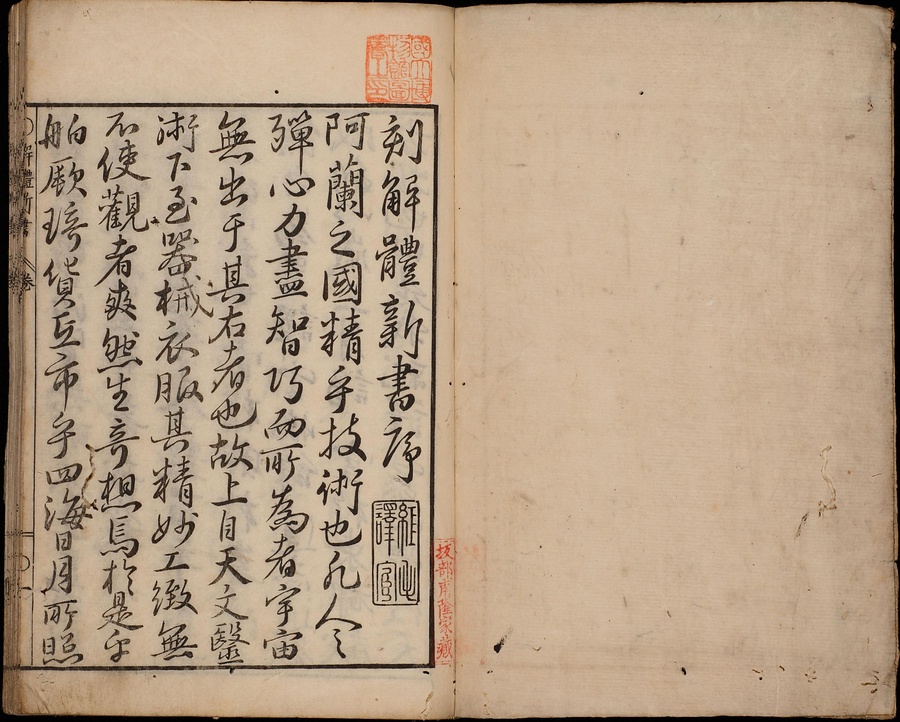 國立博
物館圖
書之印
刻解體新書序
譯官
家藏
阿蘭之國精乎技術也凡人之
殫心力盡智巧而所為者宇宙
無出于其右者也故上自天文醫
術下至器械衣服其精妙工緻無
不使觀者爽然生奇想焉於是乎
舶厥琦貨互市乎四海日月所照
解體新書
卷
一